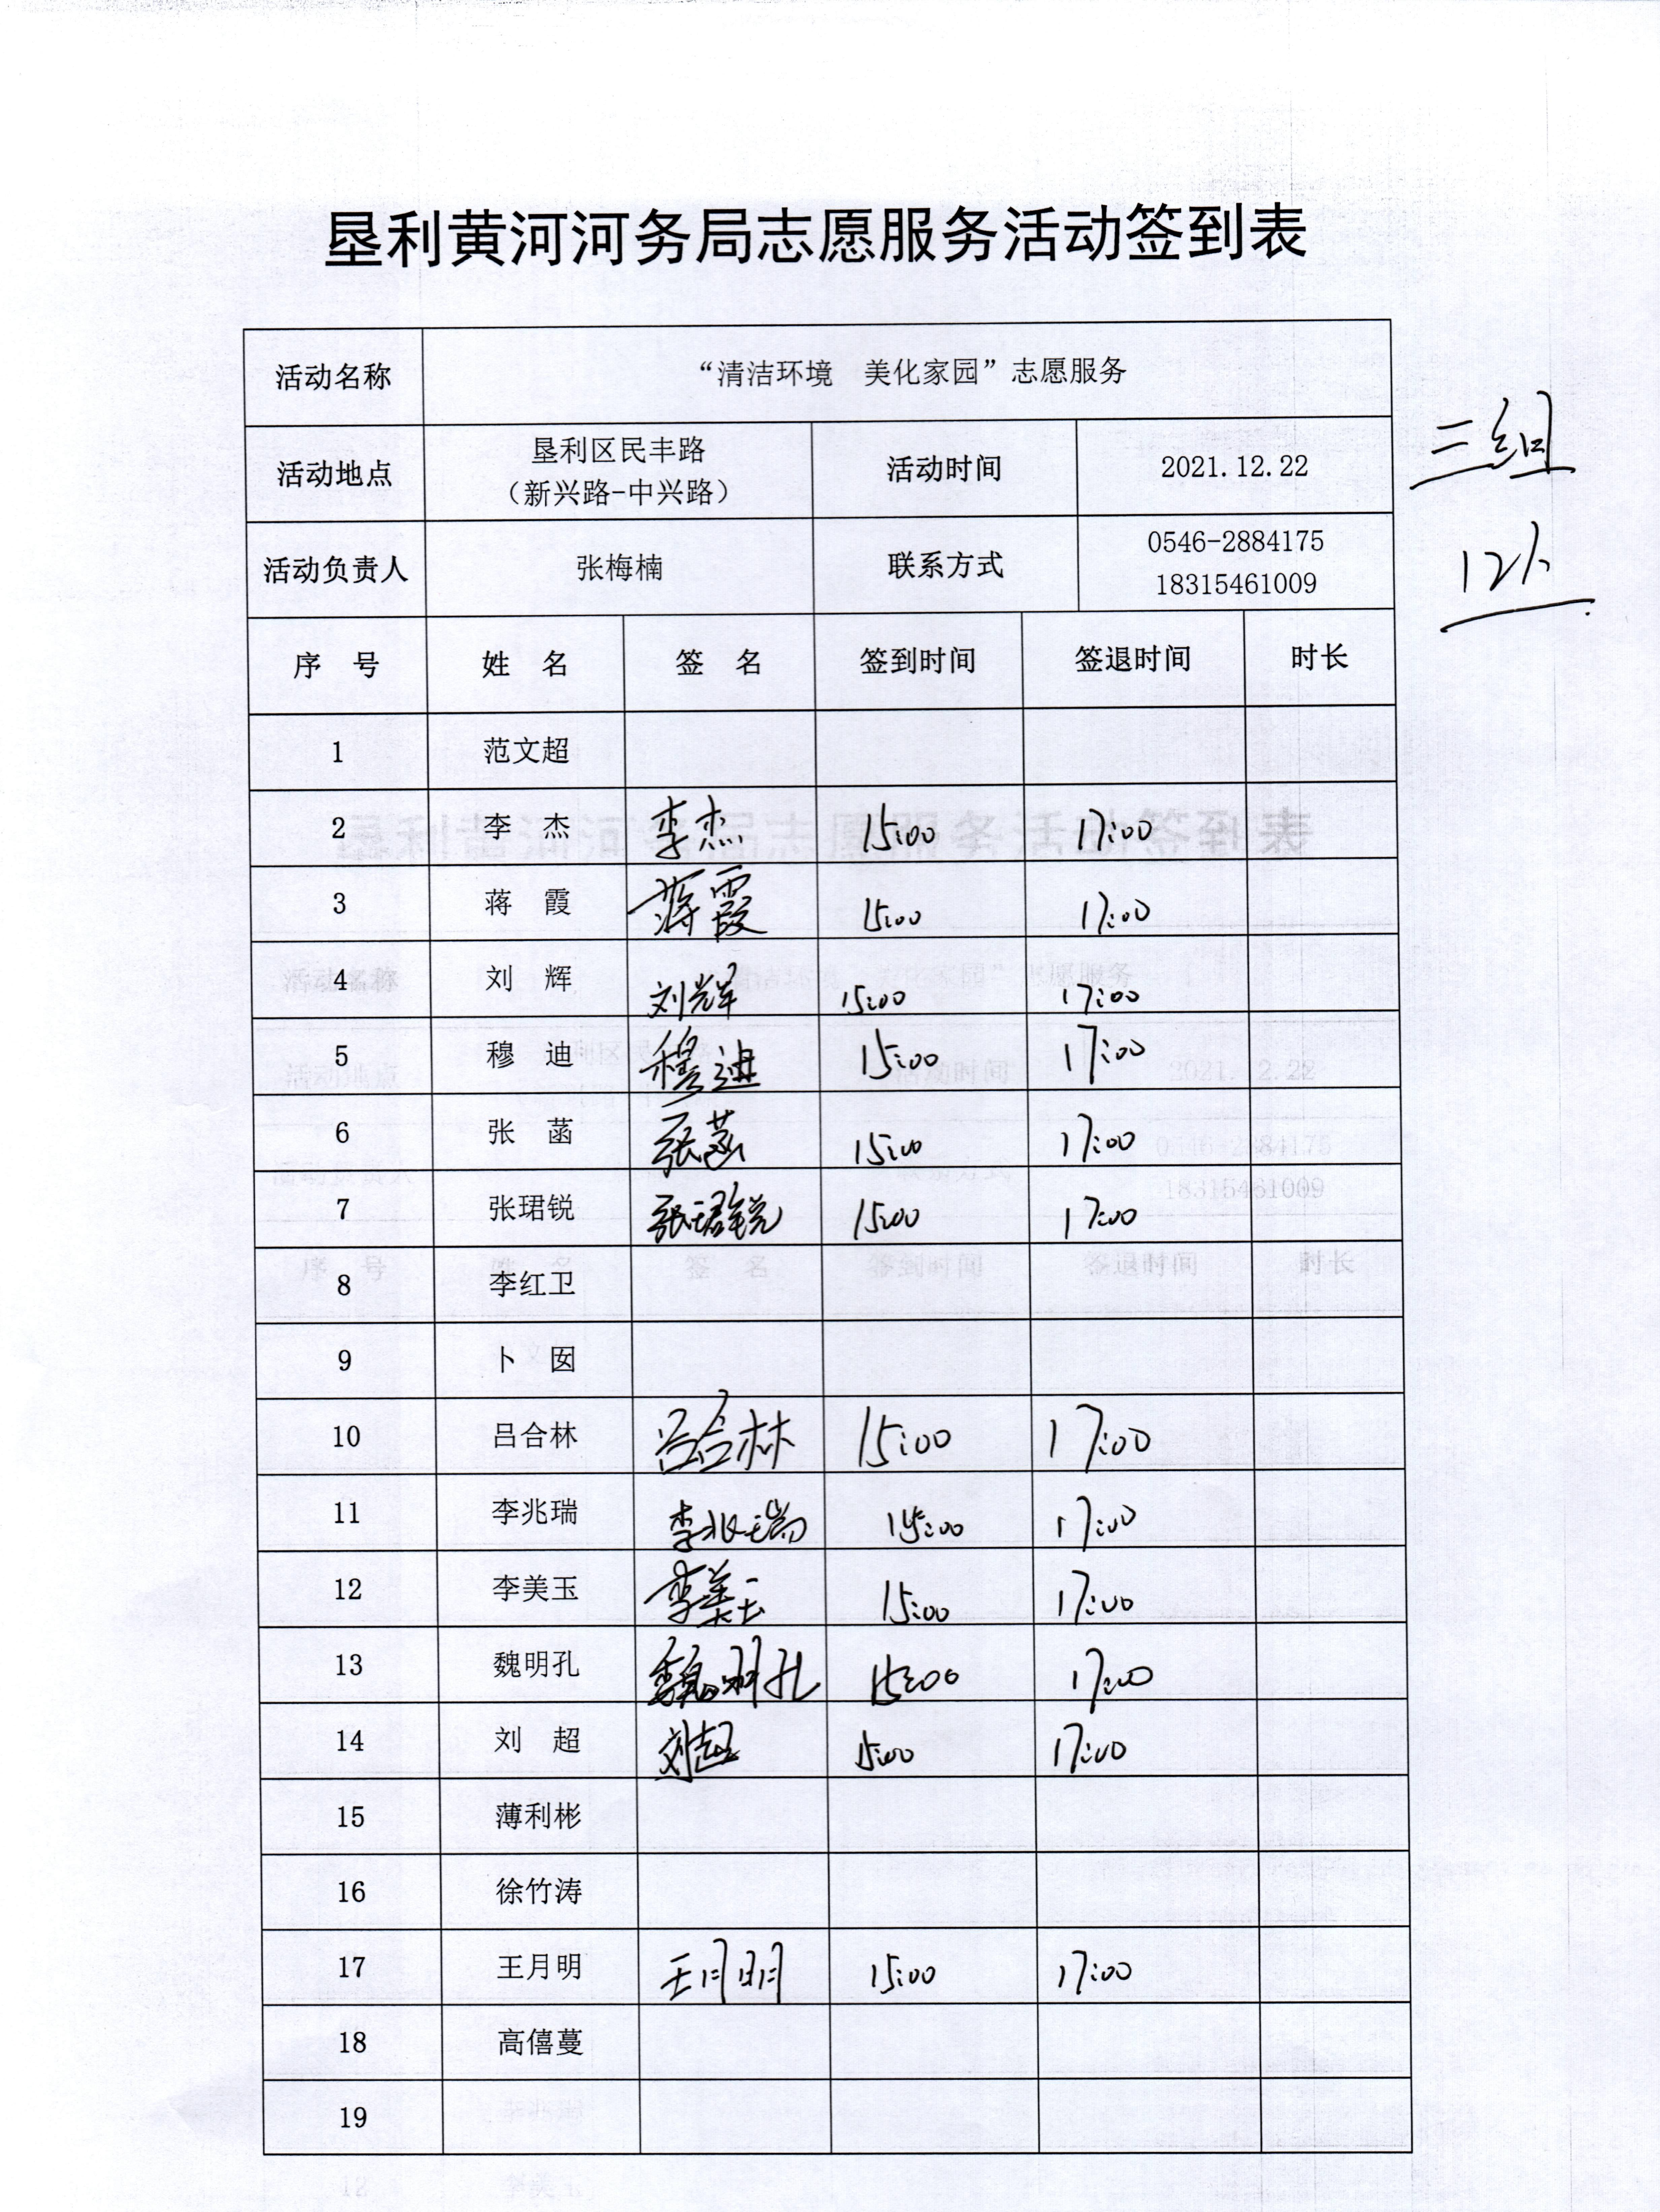 垦利黄河河务局志愿服务活动签到表
活动名称 “清洁环境 美化家园”志愿服务
活动地点 垦利区民丰路
（新兴路-中兴路） 活动时间 2021.12.22
三组
活动负责人 张梅楠 联系方式 0546-2884175
18315461009
12人
序 号 姓 名 签 名 签到时间 签退时间 时长
1 范文超
2 李 杰 李杰 15:00 17:00
3 蒋 霞 蒋霞 15:00 17:00
4 刘 辉 刘辉 15:00 17:00
5 穆 迪 穆迪 15:00 17:00
6 张 菡 张菡 15:00 17:00
7 张珺锐 张珺锐 15:00 17:00
8 李红卫
9 卜 囡
10 吕合林 吕合林 15:00 17:00
11 李兆瑞 李兆瑞 15:00 17:00
12 李美玉 李美玉 15:00 17:00
13 魏明孔 魏明孔 15:00 17:00
14 刘 超 刘超 15:00 17:00
15 薄利彬
16 徐竹涛
17 王月明 王月明 15:00 17:00
18 高僖蔓
19